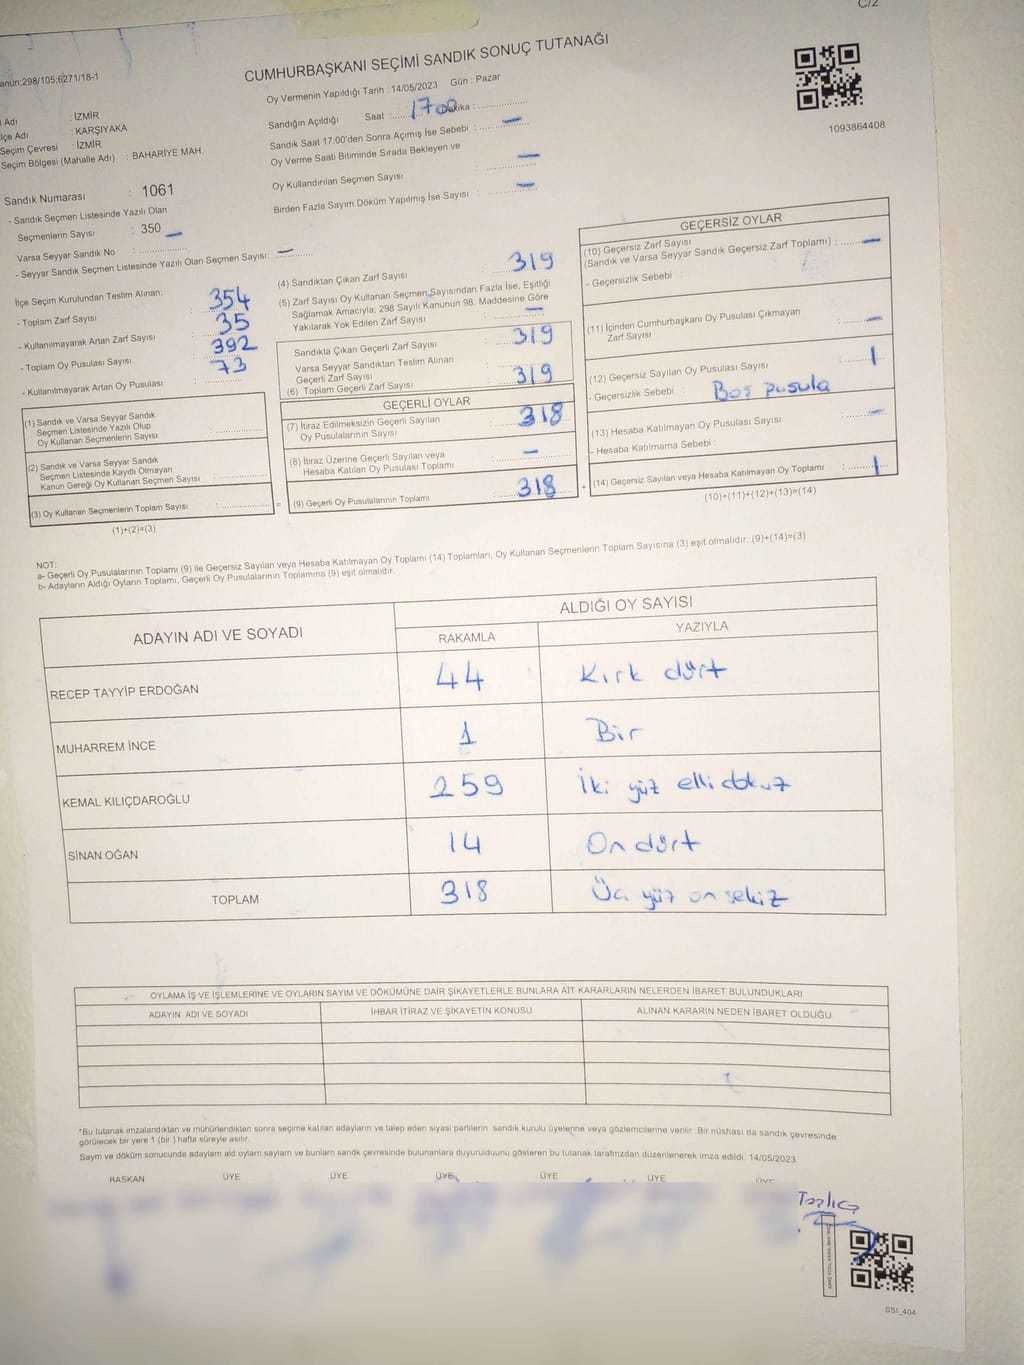 C/2
CUMHURBAŞKANI SEÇİMİ SANDIK SONUÇ TUTANAĞI
anun;298/105;6271/18-1
Oy Vermenin Yapıldığı Tarih : 14/05/2023 Gün : Pazar
Adı : İZMİR
lçe Adı : KARŞIYAKA
Seçim Çevresi : İZMİR
Seçim Bölgesi (Mahalle Adı) : BAHARİYE MAH.
Sandığın Açıldığı Saat : 1700 Dakika :
Sandık Saat 17:00'den Sonra Açımış İse Sebebi : —
Oy Verme Saati Bitiminde Sırada Bekleyen ve
Oy Kullandırılan Seçmen Sayısı : —
Birden Fazla Sayım Döküm Yapılmış İse Sayısı : —
1093864408
Sandık Numarası : 1061
- Sandık Seçmen Listesinde Yazılı Olan
Seçmenlerin Sayısı : 350 —
Varsa Seyyar Sandık No :
- Seyyar Sandık Seçmen Listesinde Yazılı Olan Seçmen Sayısı: —
İlçe Seçim Kurulundan Teslim Alınan:
- Toplam Zarf Sayısı : 354
- Kullanılmayarak Artan Zarf Sayısı : 35
- Toplam Oy Pusulası Sayısı : 392
- Kullanılmayarak Artan Oy Pusulası : 73
(1) Sandık ve Varsa Seyyar Sandık
Seçmen Listesinde Yazılı Olup
Oy Kullanan Seçmenlerin Sayısı :
(2) Sandık ve Varsa Seyyar Sandık
Seçmen Listesinde Kayıtlı Olmayan
Kanun Gereği Oy Kullanan Seçmen Sayısı :
(3) Oy Kullanan Seçmenlerin Toplam Sayısı : =
(1)+(2)=(3)
(4) Sandıktan Çıkan Zarf Sayısı : 319
(5) Zarf Sayısı Oy Kullanan Seçmen Sayısından Fazla İse, Eşitliği
Sağlamak Amacıyla; 298 Sayılı Kanunun 98. Maddesine Göre
Yakılarak Yok Edilen Zarf Sayısı : —
Sandıkta Çıkan Geçerli Zarf Sayısı : 319
Varsa Seyyar Sandıktan Teslim Alınan
Geçerli Zarf Sayısı :
(6) Toplam Geçerli Zarf Sayısı : 319
GEÇERLİ OYLAR
(7) İtiraz Edilmeksizin Geçerli Sayılan
Oy Pusulalarının Sayısı : 318
(8) İtiraz Üzerine Geçerli Sayılan veya
Hesaba Katılan Oy Pusulası Toplamı : —
(9) Geçerli Oy Pusulalarının Toplamı : 318 +
GEÇERSİZ OYLAR
(10) Geçersiz Zarf Sayısı
(Sandık ve Varsa Seyyar Sandık Geçersiz Zarf Toplamı) : —
- Geçersizlik Sebebi :
(11) İçinden Cumhurbaşkanı Oy Pusulası Çıkmayan
Zarf Sayısı : —
(12) Geçersiz Sayılan Oy Pusulası Sayısı : 1
- Geçersizlik Sebebi : Boş pusula
(13) Hesaba Katılmayan Oy Pusulası Sayısı : —
- Hesaba Katılmama Sebebi :
(14) Geçersiz Sayılan veya Hesaba Katılmayan Oy Toplamı : 1
(10)+(11)+(12)+(13)=(14)
NOT:
a- Geçerli Oy Pusulalarının Toplamı (9) ile Geçersiz Sayılan veya Hesaba Katılmayan Oy Toplamı (14) Toplamları, Oy Kullanan Seçmenlerin Toplam Sayısına (3) eşit olmalıdır. (9)+(14)=(3)
b- Adayların Aldığı Oyların Toplamı, Geçerli Oy Pusulalarının Toplamına (9) eşit olmalıdır.
ADAYIN ADI VE SOYADI ALDIĞI OY SAYISI
RAKAMLA YAZIYLA
RECEP TAYYİP ERDOĞAN 44 Kırk dört
MUHARREM İNCE 1 Bir
KEMAL KILIÇDAROĞLU 259 İki yüz elli dokuz
SİNAN OĞAN 14 On dört
TOPLAM 318 Üç yüz on sekiz
OYLAMA İŞ VE İŞLEMLERİNE VE OYLARIN SAYIM VE DÖKÜMÜNE DAİR ŞİKAYETLERLE BUNLARA AİT KARARLARIN NELERDEN İBARET BULUNDUKLARI
ADAYIN ADI VE SOYADI İHBAR İTİRAZ VE ŞİKAYETİN KONUSU ALINAN KARARIN NEDEN İBARET OLDUĞU
*Bu tutanak imzalandıktan ve mühürlendikten sonra seçime katılan adayların ve talep eden siyasi partilerin sandık kurulu üyelerine veya gözlemcilerine verilir. Bir nüshası da sandık çevresinde
görülecek bir yere 1 (bir ) hafta süreyle asılır.
Saym ve döküm sonucunda adaylarn ald oylarn saylarn ve bunlarn sandk çevresinde bulunanlara duyurulduunu gösteren bu tutanak tarafmzdan düzenlenerek imza edildi. 14/05/2023
BAŞKAN ÜYE ÜYE ÜYE ÜYE ÜYE ÜYE
SSI_404